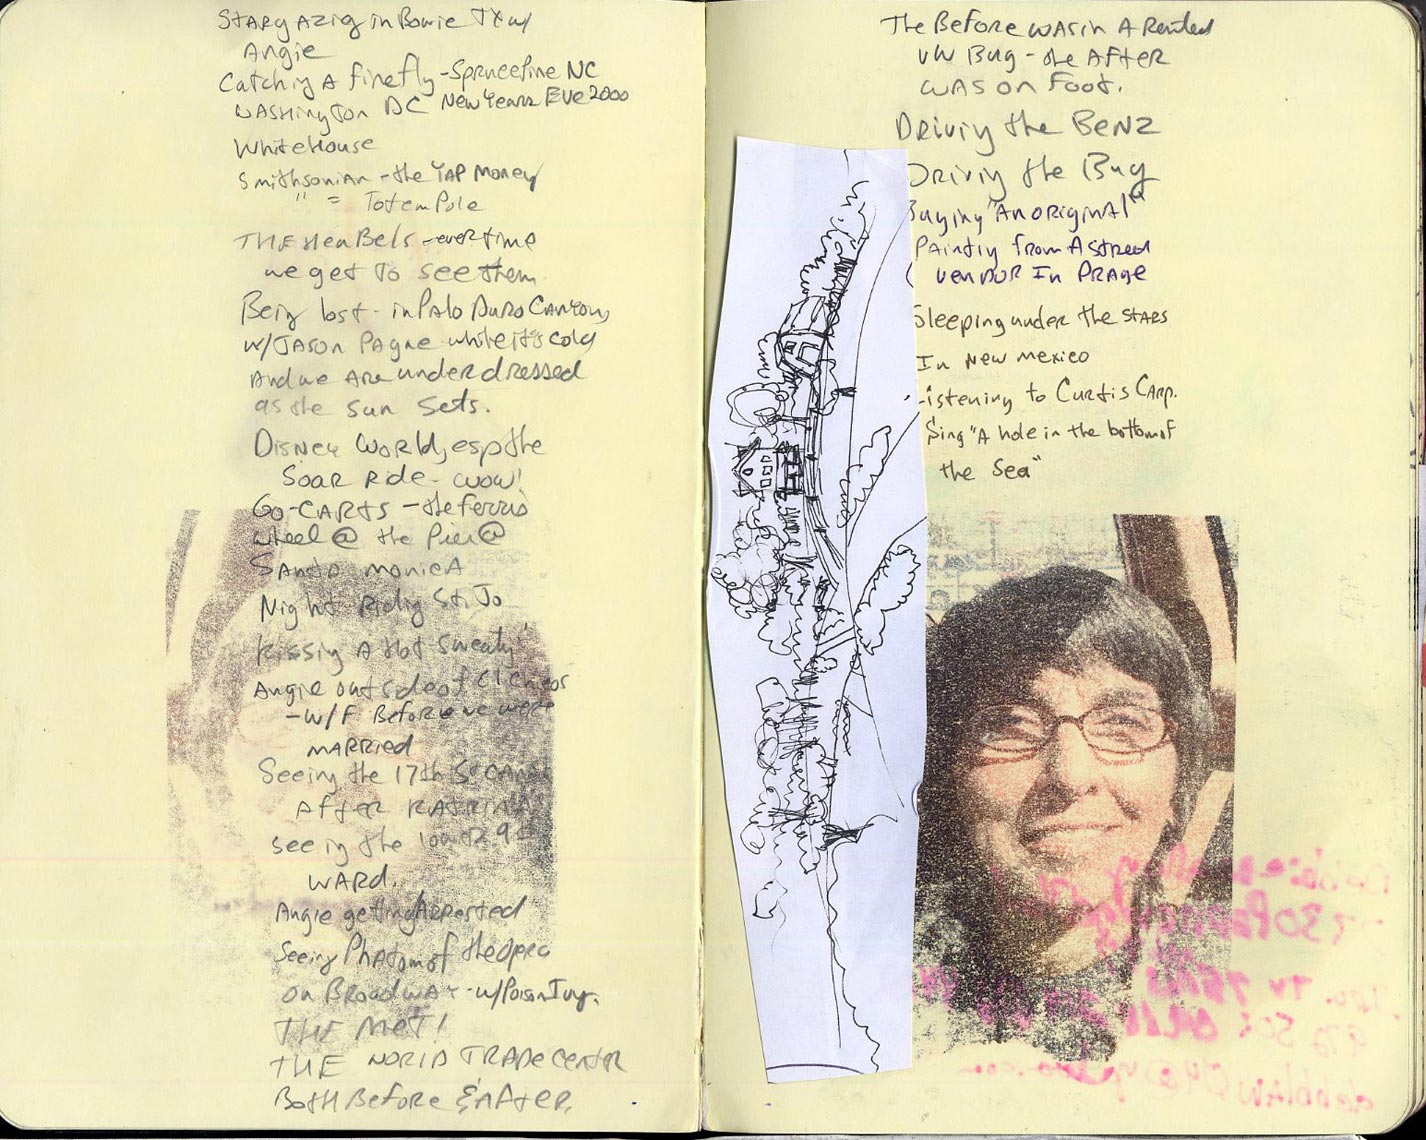 Stargazing in Bowie TX w/
Angie
Catching A firefly - Sprucepine NC
Washington DC New Years Eve 2000
WhiteHouse
Smithsonian - the YAP Money
" = Totem Pole
THE HeaBels - everytime
we get to see them
Being lost - in Palo Duro Canyon,
w/ JASON Payne while it's cold
And we Are underdressed
as the sun sets.
Disney World, esp the
Soar Ride - wow!
Go-CARTS - the ferris
wheel @ the Pier @
Santa Monica
Night Riding St. Jo
Kissing A Hot Sweaty
Angie outside of
- W/F Before we were
MARRIED
Seeing the 17th St Canal
After KATRINA
seeing the lower 9th
WARD.
Angie getting Arrested
Seeing Phatom of the Opera
on Broadway - w/ Poison Ivy.
THE MET!
THE WORLD TRADE CENTER
Both Before & After.
The Before was in A Rented
VW Bug - the After
was on Foot.
Driving the BENZ
Driving the Bug
Buying "An original"
Paintiy from A street
vendor In PRAGE
Sleeping under the stars
In New Mexico
Listening to Curtis Carp.
Sing "A hole in the bottom of
the Sea"